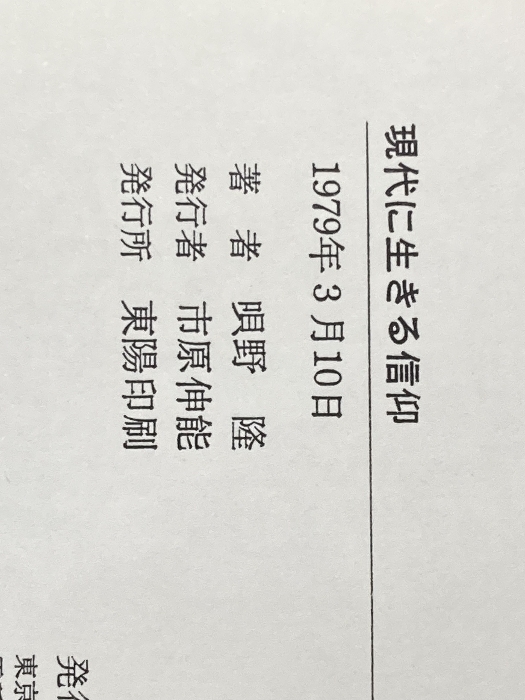 現代に生きる信仰
1979年3月10日
著 者 唄野 隆
発行者 市原伸能
発行所 東陽印刷
発行
東京